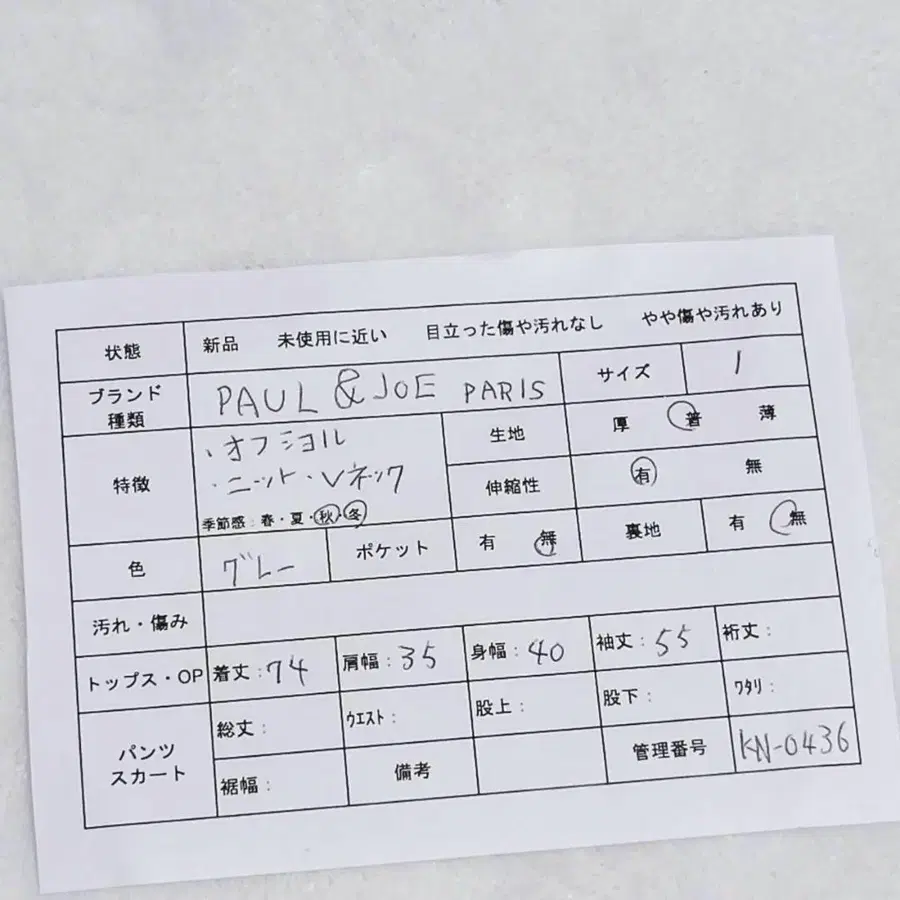 状態 新品 未使用に近い 目立った傷や汚れなし やや傷や汚れあり
ブランド種類 PAUL & JOE PARIS サイズ 1
特徴 ・オフショル
・ニット・Vネック
季節感:春・夏・秋・冬
生地 厚 普 薄
伸縮性 有 無
色 グレー ポケット 有 無 裏地 有 無
汚れ・傷み
トップス・OP 着丈:74 肩幅:35 身幅:40 袖丈:55 裄丈:
パンツ
スカート
総丈: ウエスト: 股上: 股下: ワタリ:
裾幅: 備考 管理番号 KN-0436